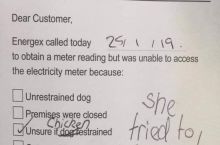 Dear Customer,
Energex called today 25/1/19.
to obtain a meter reading but was unable to access
the electricity meter because:
Unrestrained dog
Premises were closed
chicken
Unsure if dog restrained
she
tried to,